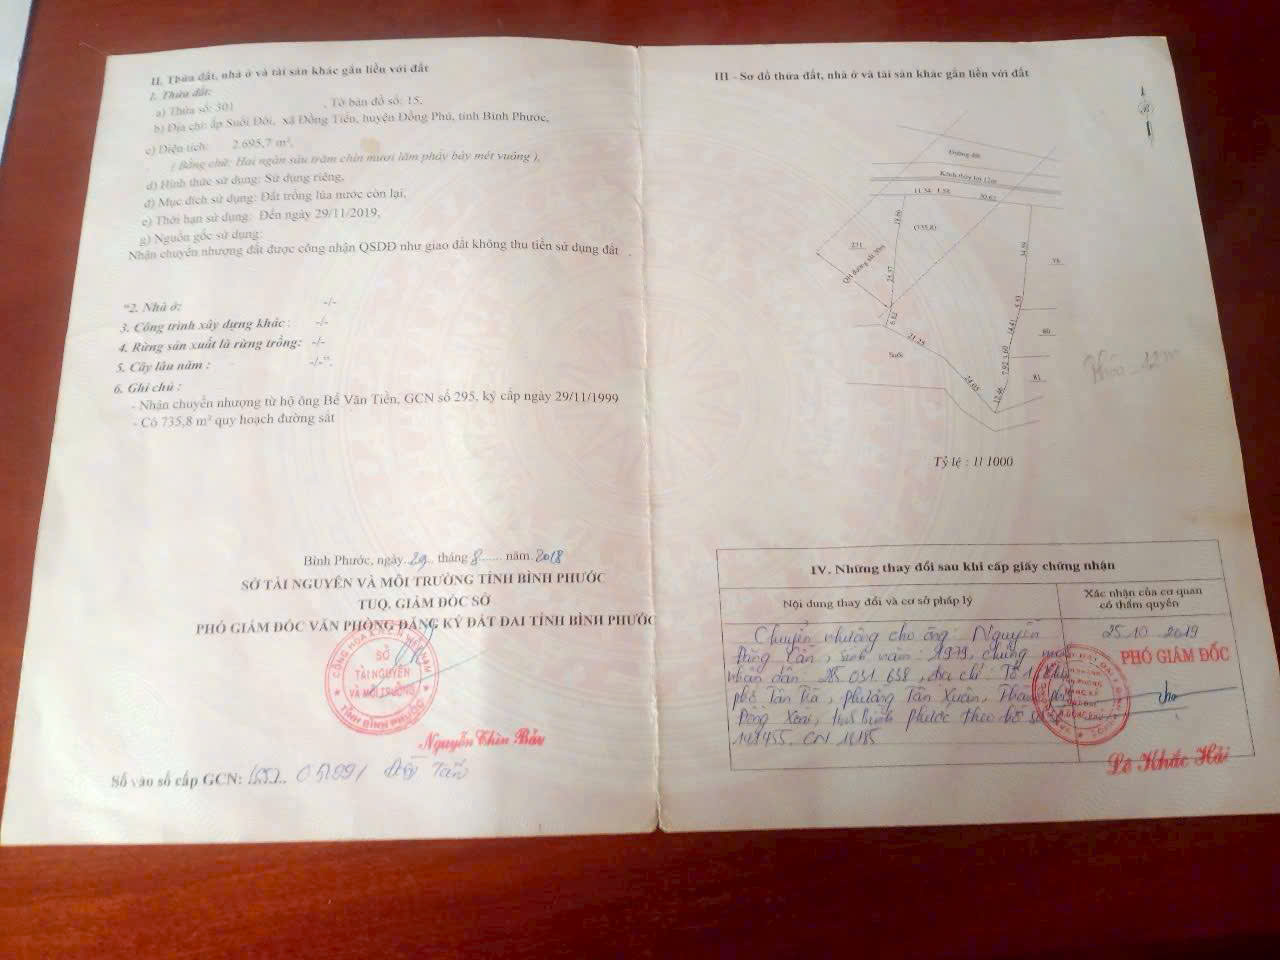 II. Thửa đất, nhà ở và tài sản khác gắn liền với đất
1. Thửa đất:
a) Thửa số: 301 , Tờ bản đồ số: 15,
b) Địa chỉ: ấp Suối Đôi, xã Đồng Tiến, huyện Đồng Phú, tỉnh Bình Phước,
c) Diện tích: 2.695,7 m²,
( Bằng chữ: Hai ngàn sáu trăm chín mươi lăm phảy bảy mét vuông ),
d) Hình thức sử dụng: Sử dụng riêng,
đ) Mục đích sử dụng: Đất trồng lúa nước còn lại,
e) Thời hạn sử dụng: Đến ngày 29/11/2019,
g) Nguồn gốc sử dụng:
Nhận chuyển nhượng đất được công nhận QSDĐ như giao đất không thu tiền sử dụng đất .
"2. Nhà ở: -/-
3. Công trình xây dựng khác : -/-
4. Rừng sản xuất là rừng trồng: -/-
5. Cây lâu năm : -/-".
6. Ghi chú :
- Nhận chuyển nhượng từ hộ ông Bế Văn Tiền, GCN số 295, ký cấp ngày 29/11/1999
- Có 735,8 m² quy hoạch đường sắt
Bình Phước, ngày 29 tháng 8 năm 2018
SỞ TÀI NGUYÊN VÀ MÔI TRƯỜNG TỈNH BÌNH PHƯỚC
TUQ. GIÁM ĐỐC SỞ
PHÓ GIÁM ĐỐC VĂN PHÒNG ĐĂNG KÝ ĐẤT ĐAI TỈNH BÌNH PHƯỚC
SỞ
TÀI NGUYÊN
VÀ MÔI TRƯỜNG
TỈNH BÌNH PHƯỚC
Nguyễn Thìn Bảy
Số vào sổ cấp GCN:
III - Sơ đồ thửa đất, nhà ở và tài sản khác gắn liền với đất
Đường đất
Kênh thủy lợi 12m
11.54 1.58 30.62
18.66
(735,8)
231
QH đường sắt 30m
25.37
34.59
78
6.82
4.53
14.41
80
21.25
Suối
7.92 3.60
24.05
81
12.46
Tỷ lệ : 1/ 1000
IV. Những thay đổi sau khi cấp giấy chứng nhận
Nội dung thay đổi và cơ sở pháp lý
Xác nhận của cơ quan
có thẩm quyền
Chuyển nhượng cho ông: Nguyễn
Đăng , sinh năm: 1979, chứng minh
nhân dân , địa chỉ: Tổ 1, khu
phố Tân Trà, phường Tân Xuân, Thành phố
Đồng Xoài, tỉnh Bình Phước theo hồ sơ số
25.10.2019
PHÓ GIÁM ĐỐC
Lê Khắc Hải